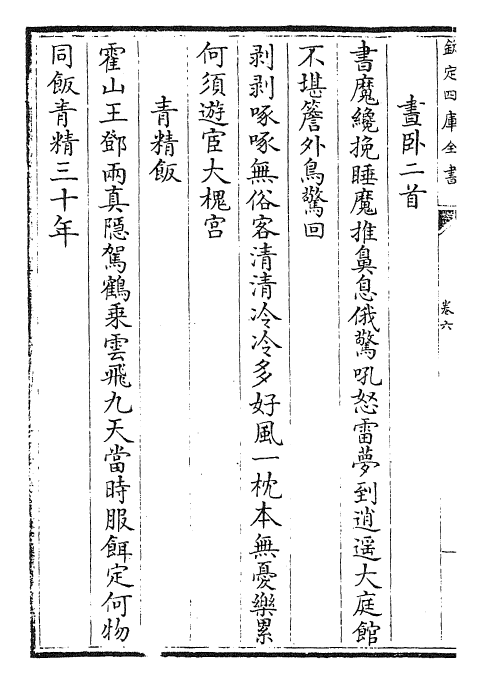 欽定四庫全書
卷六
一
晝卧二首
書魔纔挽睡魔推鼻息俄驚吼怒雷夢到逍遥大庭館
不堪簷外鳥驚回
剥剥啄啄無俗客清清冷冷多好風一枕本無憂樂累
何須遊宦大槐宫
青精飯
霍山王鄧兩真隠駕鶴乘雲飛九天當時服餌定何物
同飯青精三十年